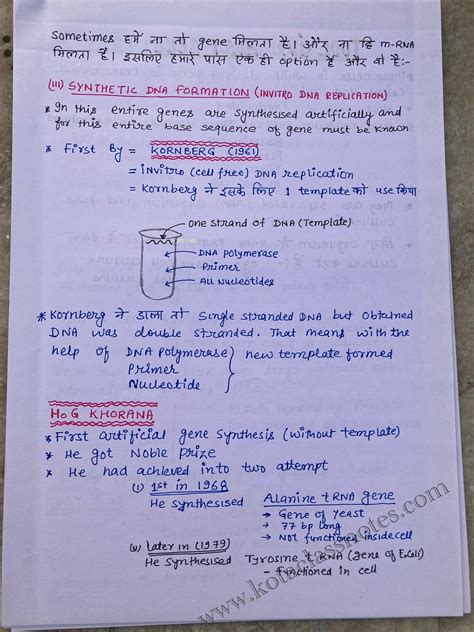 Sometimes हमें ना तो gene मिलता है। और ना हि m-RNA
मिलता है। इसलिए हमारे पास एक ही option है और वो है:-
(III) SYNTHETIC DNA FORMATION (INVITRO DNA REPLICATION)
* In this entire genes are synthesised artificially and
for this entire base sequence of gene must be known
* First By = KORNBERG (1961)
= Invitro (cell free) DNA replication
= Kornberg ने इसके लिए 1 template को use किया
one strand of DNA (Template)
DNA Polymerase
Primer
All Nucleotides
* Kornberg ने डाला तो Single stranded DNA but obtained
DNA was double stranded. That means with the
help of DNA polymerase
Primer
Nucleotide
new template formed
H.G KHORANA
* First artificial gene synthesis (without template)
* He got Noble Prize
* He had achieved into two attempt
(i) 1st in 1968
He synthesised
Alanine tRNA gene
→ Gene of Yeast
→ 77 bp long
→ Not functioned inside cell
Later in (1979)
He Synthesised Tyrosine tRNA (gene of E.Coli)
- Functioned in cell
www.kotaclassnotes.com